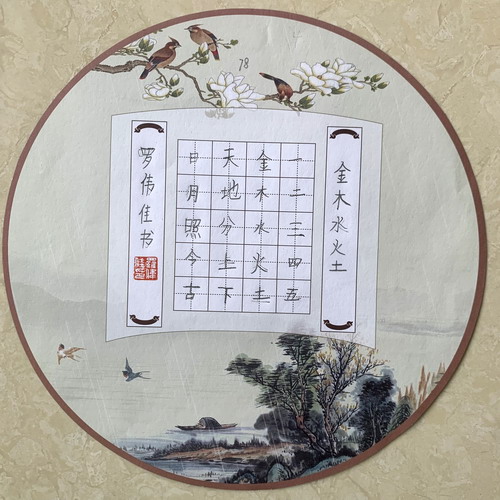 78
金木水火土
一二三四五
金木水火土
天地分上下
日月照今古
罗伟佳书